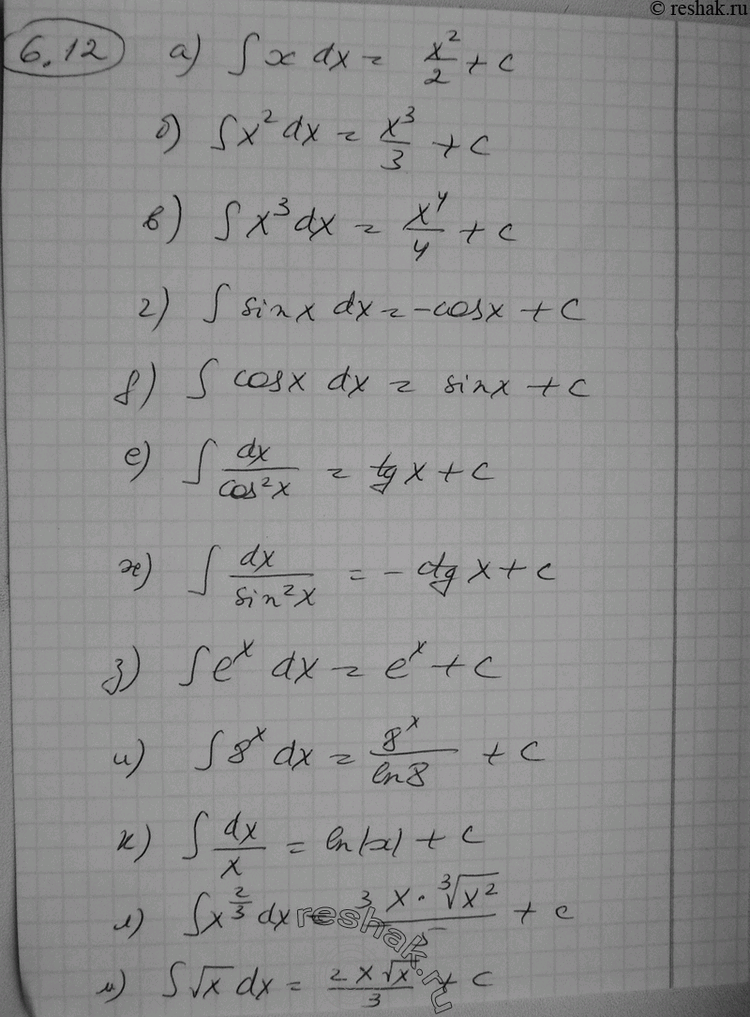 © reshak.ru
6.12 а) ∫ x dx = x²/2 + C
б) ∫ x² dx = x³/3 + C
в) ∫ x³ dx = x⁴/4 + C
г) ∫ sin x dx = -cos x + C
д) ∫ cos x dx = sin x + C
е) ∫ dx/cos²x = tg x + C
ж) ∫ dx/sin²x = -ctg x + C
з) ∫ eˣ dx = eˣ + C
и) ∫ 8ˣ dx = 8ˣ/ln 8 + C
к) ∫ dx/x = ln|x| + C
л) ∫ x^(2/3) dx = 3x·∛x²/5 + C
м) ∫ √x dx = 2x√x/3 + C
reshak.ru